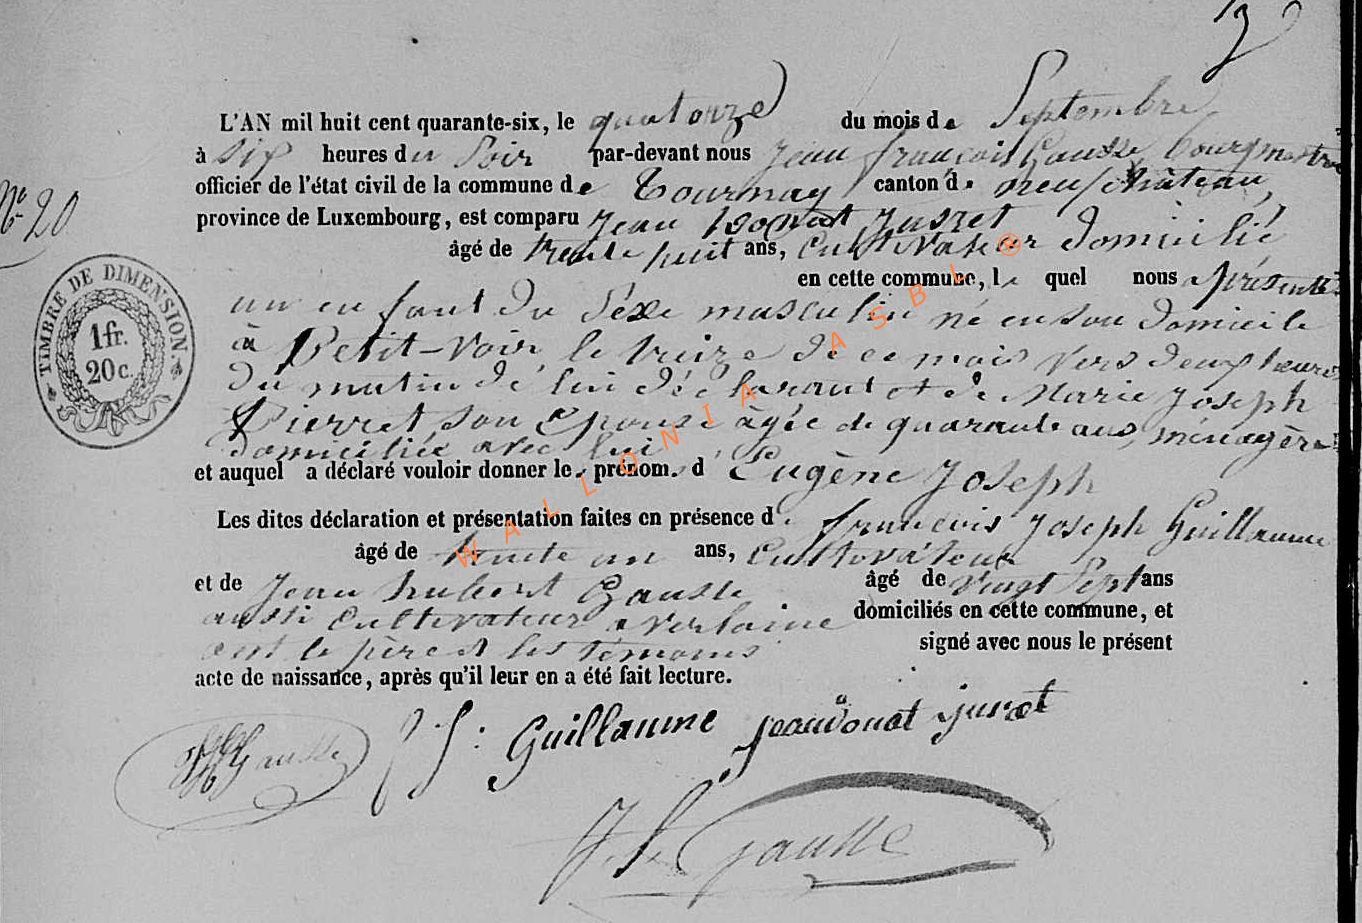 N° 20
TIMBRE DE DIMENSION.
1 fr.
20 c.
L'AN mil huit cent quarante-six, le quatorze du mois de Septembre
à six heures du Soir par-devant nous Jean françois Gausse bourgmestre
officier de l'état civil de la commune de Tournay canton de neufchâteau,
province de Luxembourg, est comparu Jean Donat Jusret
âgé de trente huit ans, Cultivateur domicilié
en cette commune, le quel nous a présenté
un enfant du Séxe masculin né en son domicile
à Petit-voir le treize de ce mois vers deux heures
du matin de lui déclarant et de Marie Joseph
Pierret son épouse âgée de quarante ans, ménagère
domiciliée avec lui
et auquel a déclaré vouloir donner les prénoms d'Eugène Joseph
Les dites déclaration et présentation faites en présence de françois Joseph Guillaume
âgé de trente un ans, Cultivateur
et de Jean hubert Gausse âgé de vingt Sept ans
aussi Cultivateur a verlaine domiciliés en cette commune, et
ont le père et les témoins signé avec nous le présent
acte de naissance, après qu'il leur en a été fait lecture.
JHGausse fJ: Guillaume jean donat jusret
J. f. Gausse
WALLONIA ASBL ®